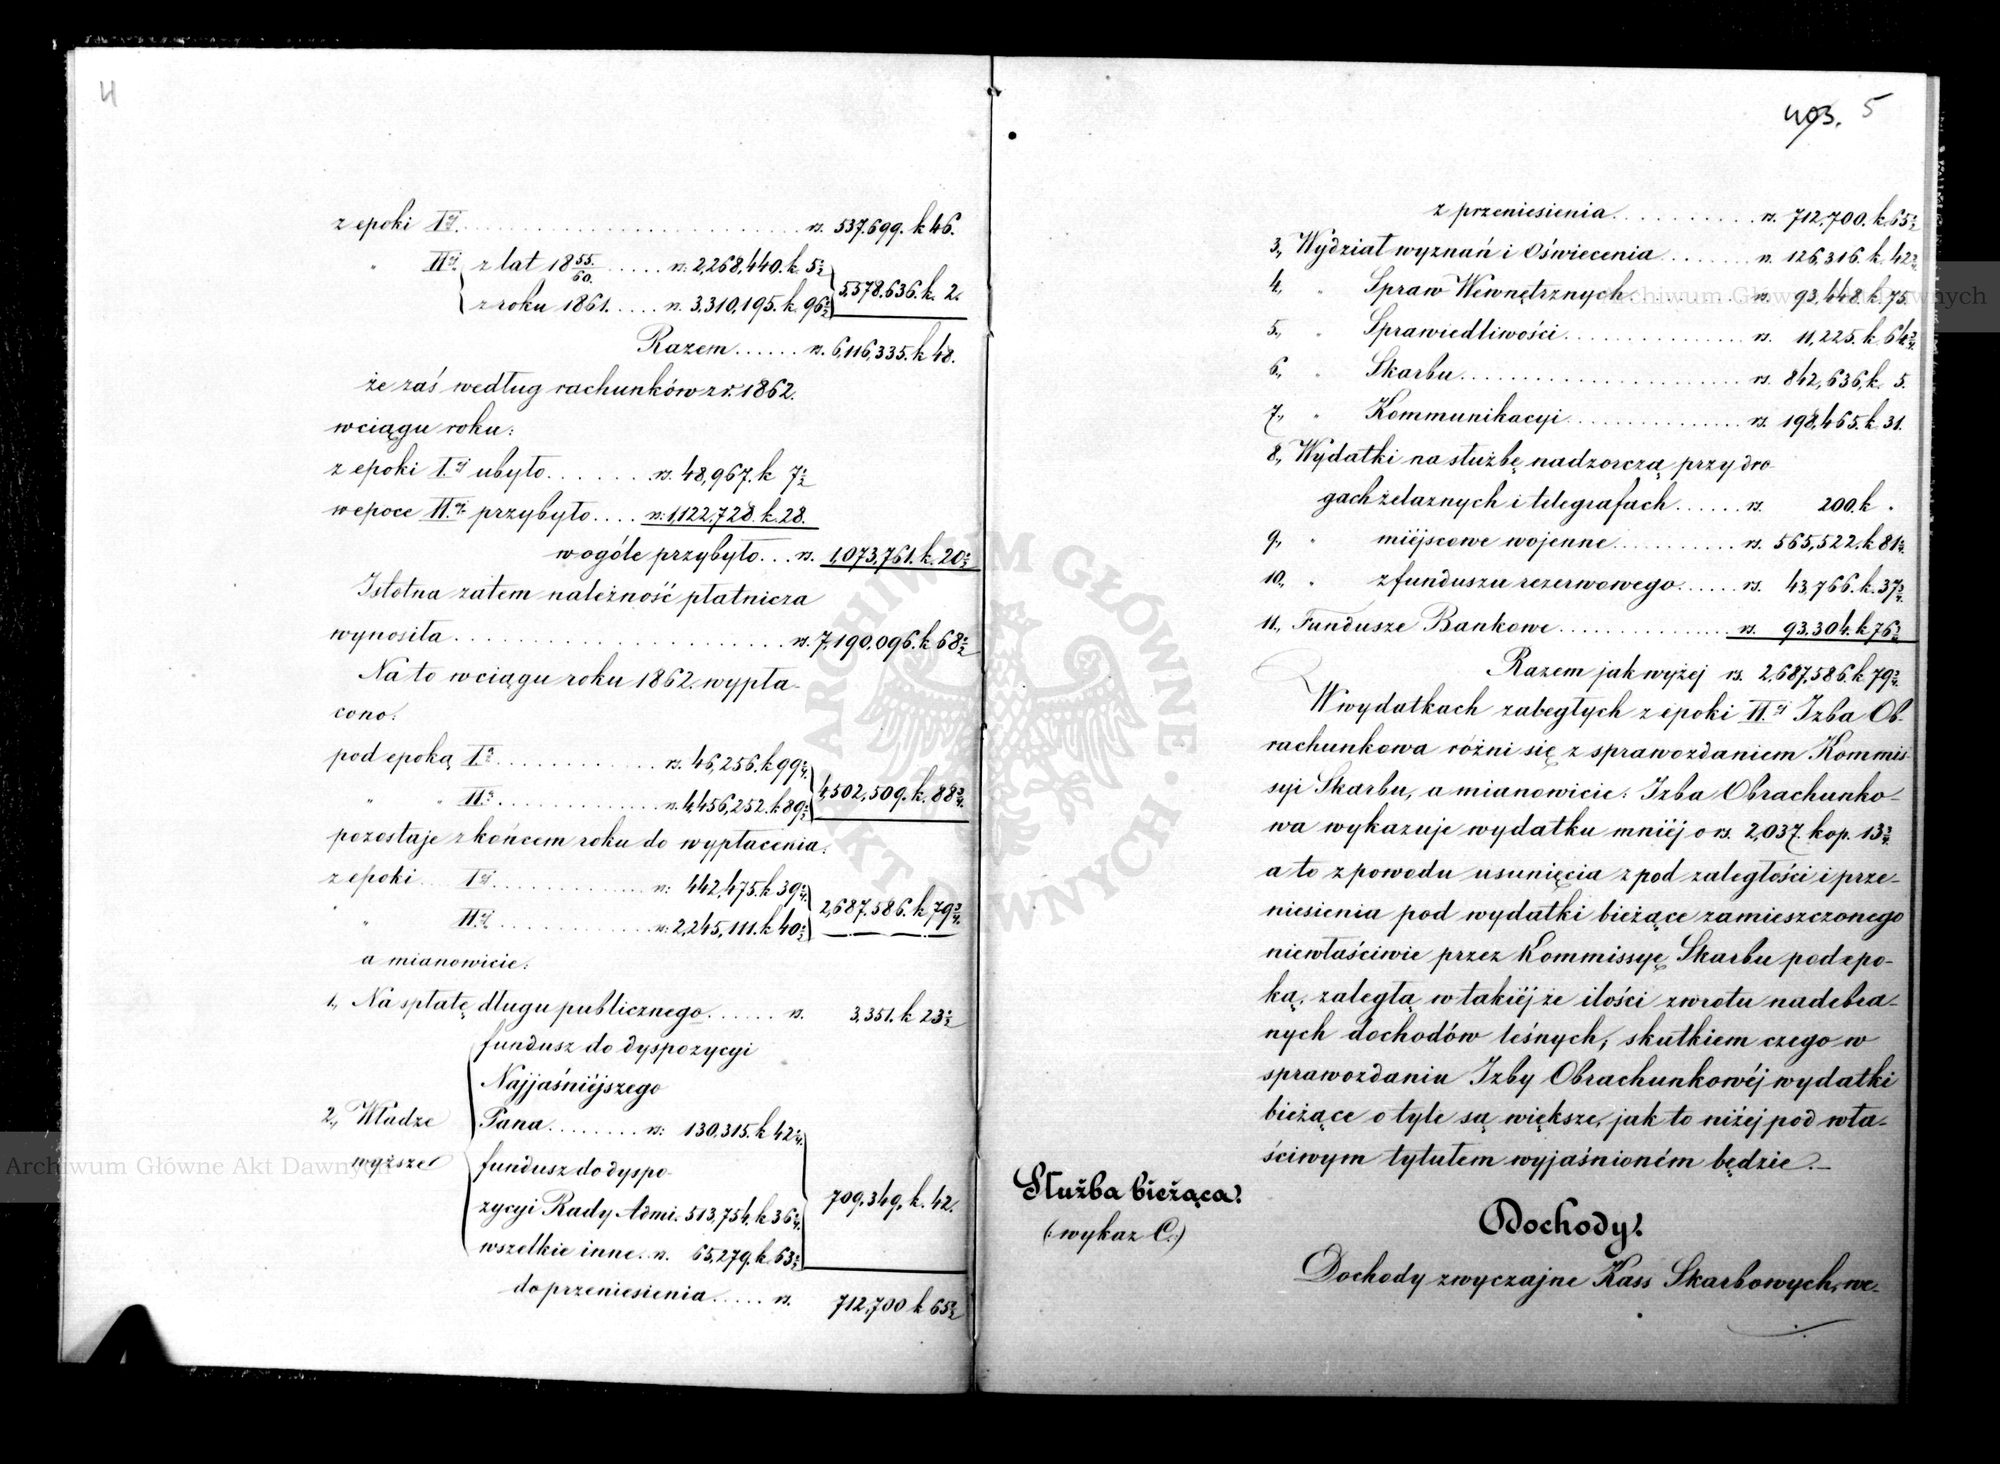 4
z epoki I.ej . . . . . rs. 537.699. k 46.
" II.ej z lat 1855/60. . . . . . rs. 2,268,440. k. 5½
z roku 1861. . . . . rs. 3,310,195. k. 96½
5,578.636. k. 2.
Razem . . . . . . rs. 6,116,335. k 48.
że zaś według rachunków z r. 1862.
w ciągu roku:
z epoki I.ej ubyło . . . . . . . rs. 48,967. k 7½
w epoce II.ej przybyło . . . . rs. 1,122,728. k. 28.
w ogóle przybyło . . . rs. 1,073,761. k. 20½
Istotna zatem należność płatnicza
wynosiła . . . . . rs. 7,190,096. k 68½
Na to w ciągu roku 1862. wypła-
cono:
pod epoką I.ą . . . . . rs. 46,256. k 99¼
" " II.ą . . . . . rs. 4,456,252. k. 89½
4,502,509. k. 88¾
pozostaje z końcem roku do wypłacenia:
z epoki I.ej . . . . . rs: 442,475. k 39¼
" " II.ej . . . . . rs: 2,245,111. k 40½
2,687.586. k. 79¾
a mianowicie:
1., Na spłatę długu publicznego . . . . . . rs. 3,351. k 23½
2., Władze wyższe
fundusz do dyspozycyi
Najjaśniéjszego
Pana . . . . . . . . rs: 130.315. k 42¼
fundusz do dyspo-
zycyi Rady Admi. 513,754. k 36¼
wszelkie inne. rs. 65,279. k. 63½
709,349, k. 42.
do przeniesienia . . . . . rs. 712,700 k 65½
403. 5
z przeniesienia . . . . . rs. 712,700. k. 65½
3., Wydział wyznań i Oświecenia . . . . . . . rs. 126,316. k. 42¾
4., " Spraw Wewnętrznych . . . . . rs. 93,448. k. 75.
5., " Sprawiedliwości . . . . . rs. 11,225. k. 64¾
6., " Skarbu . . . . . rs. 842,636, k. 5.
7., " Kommunikacyi . . . . . rs. 198,465. k. 31.
8., Wydatki na służbę nadzorczą przy dro-
gach żelaznych i telegrafach . . . . . . rs. 200. k "
9., " miéjscowe wojenne . . . . . rs. 565,522. k 81¼
10., " z funduszu rezerwowego . . . . . . rs. 43,766. k. 37¾
11., Fundusze Bankowe . . . . . rs. 93,304. k. 76½
Razem jak wyżej rs. 2,687,586. k. 79¾
W wydatkach zaległych z epoki II.ej Izba Ob-
rachunkowa różni się z sprawozdaniem Kommis-
syi Skarbu, a mianowicie: Izba Obrachunko-
wa wykazuje wydatku mniéj o rs. 2,037. kop. 13¾
a to z powodu usunięcia z pod zaległości i prze-
niesienia pod wydatki bieżące zamieszczonego
niewłaściwie przez Kommissyę Skarbu pod epo-
ką, zaległą w takiéj że ilości zwrotu nadebra-
nych dochodów leśnych; skutkiem czego w
sprawozdaniu Izby Obrachunkowéj wydatki
bieżące o tyle są większe, jak to niżéj pod wła-
ściwym tytułem wyjaśnioném będzie. —
Służba bieżąca.
(: wykaz C. :)
Dochody.
Dochody zwyczajne Kass Skarbowych, we-
Archiwum Główne Akt Dawnych
Archiwum Główne Akt Dawnych
ARCHIWUM GŁÓWNE • AKT DAWNYCH •